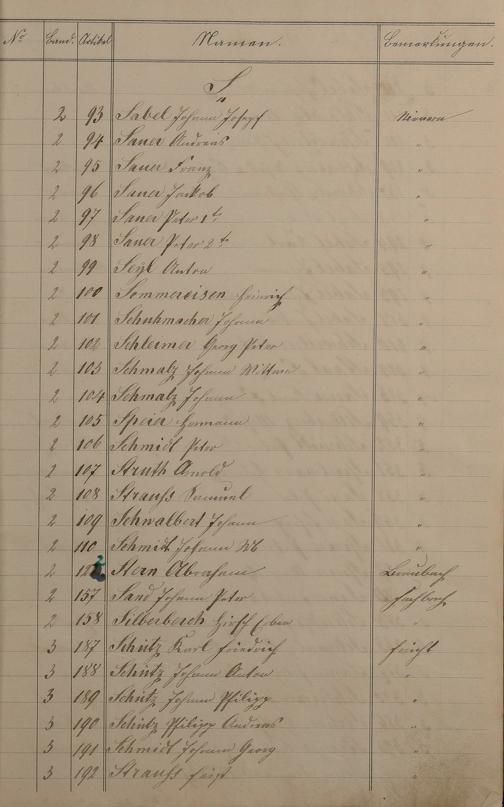 No Band. Artikel Namen. Bemerkungen.
S
2 93 Sabel Johann Josepf Nievern
2 94 Sauer Andreas "
2 95 Sauer Franz "
2 96 Sauer Jackob "
2 97 Sauer Peter 1t "
2 98 Sauer Peter 2t "
2 99 Seyl Anton "
2 100 Sommereisen Heinrich "
2 101 Schuhmacher Johann "
2 102 Schlermer Georg Peter "
2 103 Schmalz Johann Wittwe "
2 104 Schmalz Johann "
2 105 Speier Hermann "
2 106 Schmidt Peter "
2 107 Struth Arnold "
2 108 Strauhs Samuel "
2 109 Schwalbert Johann "
2 110 Schmidt Johann "
2 Stern Abraham Braubach
2 157 Sand Johann Peter Fachbach
2 158 Silberberch Hirsch Erben "
3 187 Schütz Karl Friedrich Frücht
3 188 Schütz Johann Anton "
3 189 Schütz Johann Philipp "
3 190 Schütz Philipp Andreas "
3 191 Schmidt Johann Georg "
3 192 Strauhs Feist "